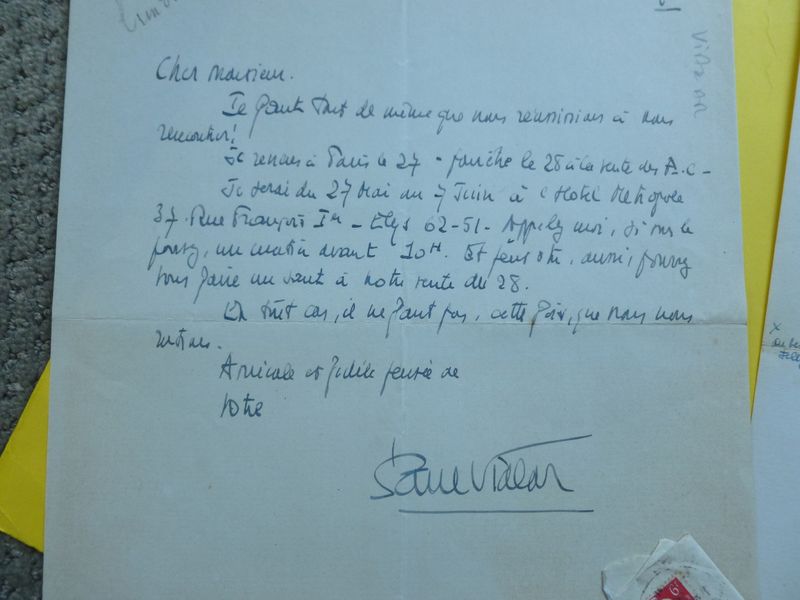 Vialar
Cher Monsieur.
Il faut tout de même que nous réussissions à nous
rencontrer!
Je reviens à Paris le 27 - le 28 à la vente des A.C -
Je serai du 27 Mai au 7 Juin à l'Hotel Metropole
37. Rue François Ier - Elys 62-51 - Appelez moi, si vous le
pouvez, un matin avant 10H. Et peut être, aussi, pourrez
vous faire un saut à notre vente du 28.
En tout cas, il ne faut pas, cette fois, que nous nous
rations.
Amicale et fidèle pensée de
Votre
Paul Vialar